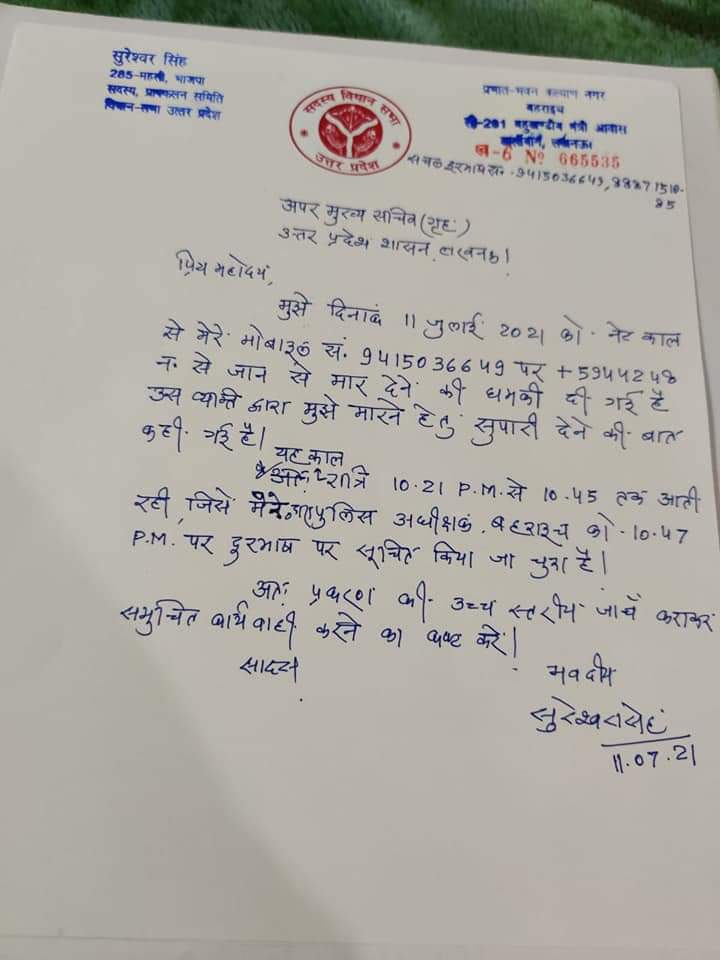 सुरेश्वर सिंह
285-महसी, भाजपा
सदस्य, प्राक्कलन समिति
विधान-सभा उत्तर प्रदेश
सदस्य विधान सभा
उत्तर प्रदेश
प्रभात-भवन कल्याण नगर
बहराइच
सी-291 बहुखण्डीय मंत्री आवास
लखनऊ
-6 Nº 665535
सचल दूरभाष सं. -9415036649, 88871510-
85
अपर मुख्य सचिव (गृह)
उत्तर प्रदेश शासन, लखनऊ।
प्रिय महोदय,
मुझे दिनांक 11 जुलाई 2021 को नेट काल
से मेरे मोबाइल सं. 9415036649 पर +5944248
न. से जान से मार देने की धमकी दी गई है
उस व्यक्ति द्वारा मुझे मारने हेतु सुपारी देने की बात
कही गई है।
यह काल
रात्रि 10.21 P.M. से 10.45 तक आती
रही, जिसे मैने पुलिस अधीक्षक, बहराइच को 10.47
P.M. पर दूरभाष पर सूचित किया जा चुका है।
अतः प्रकरण की उच्च स्तरीय जाँच कराकर
समुचित कार्यवाही करने का कष्ट करें।
सादर
भवदीय
सुरेश्वर सिंह
11.07.21